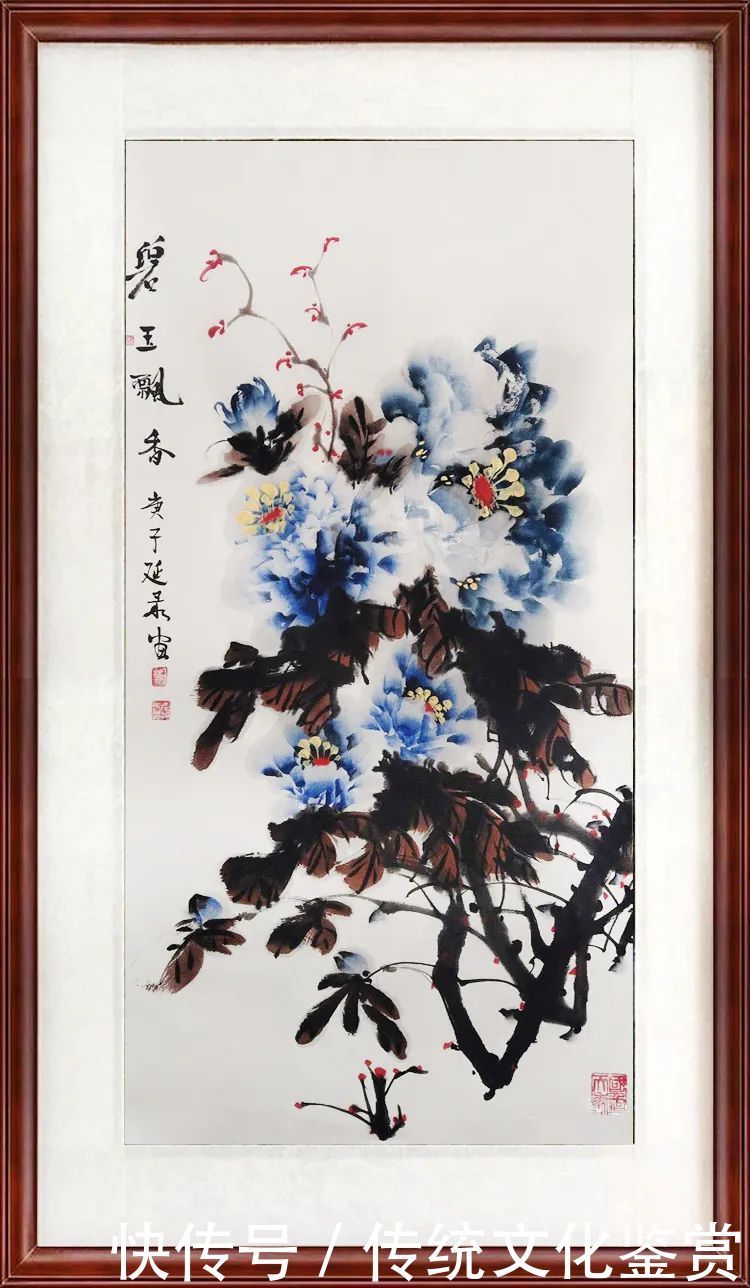 碧玉飄香
庚子延
快传号 / 传统文化鉴赏